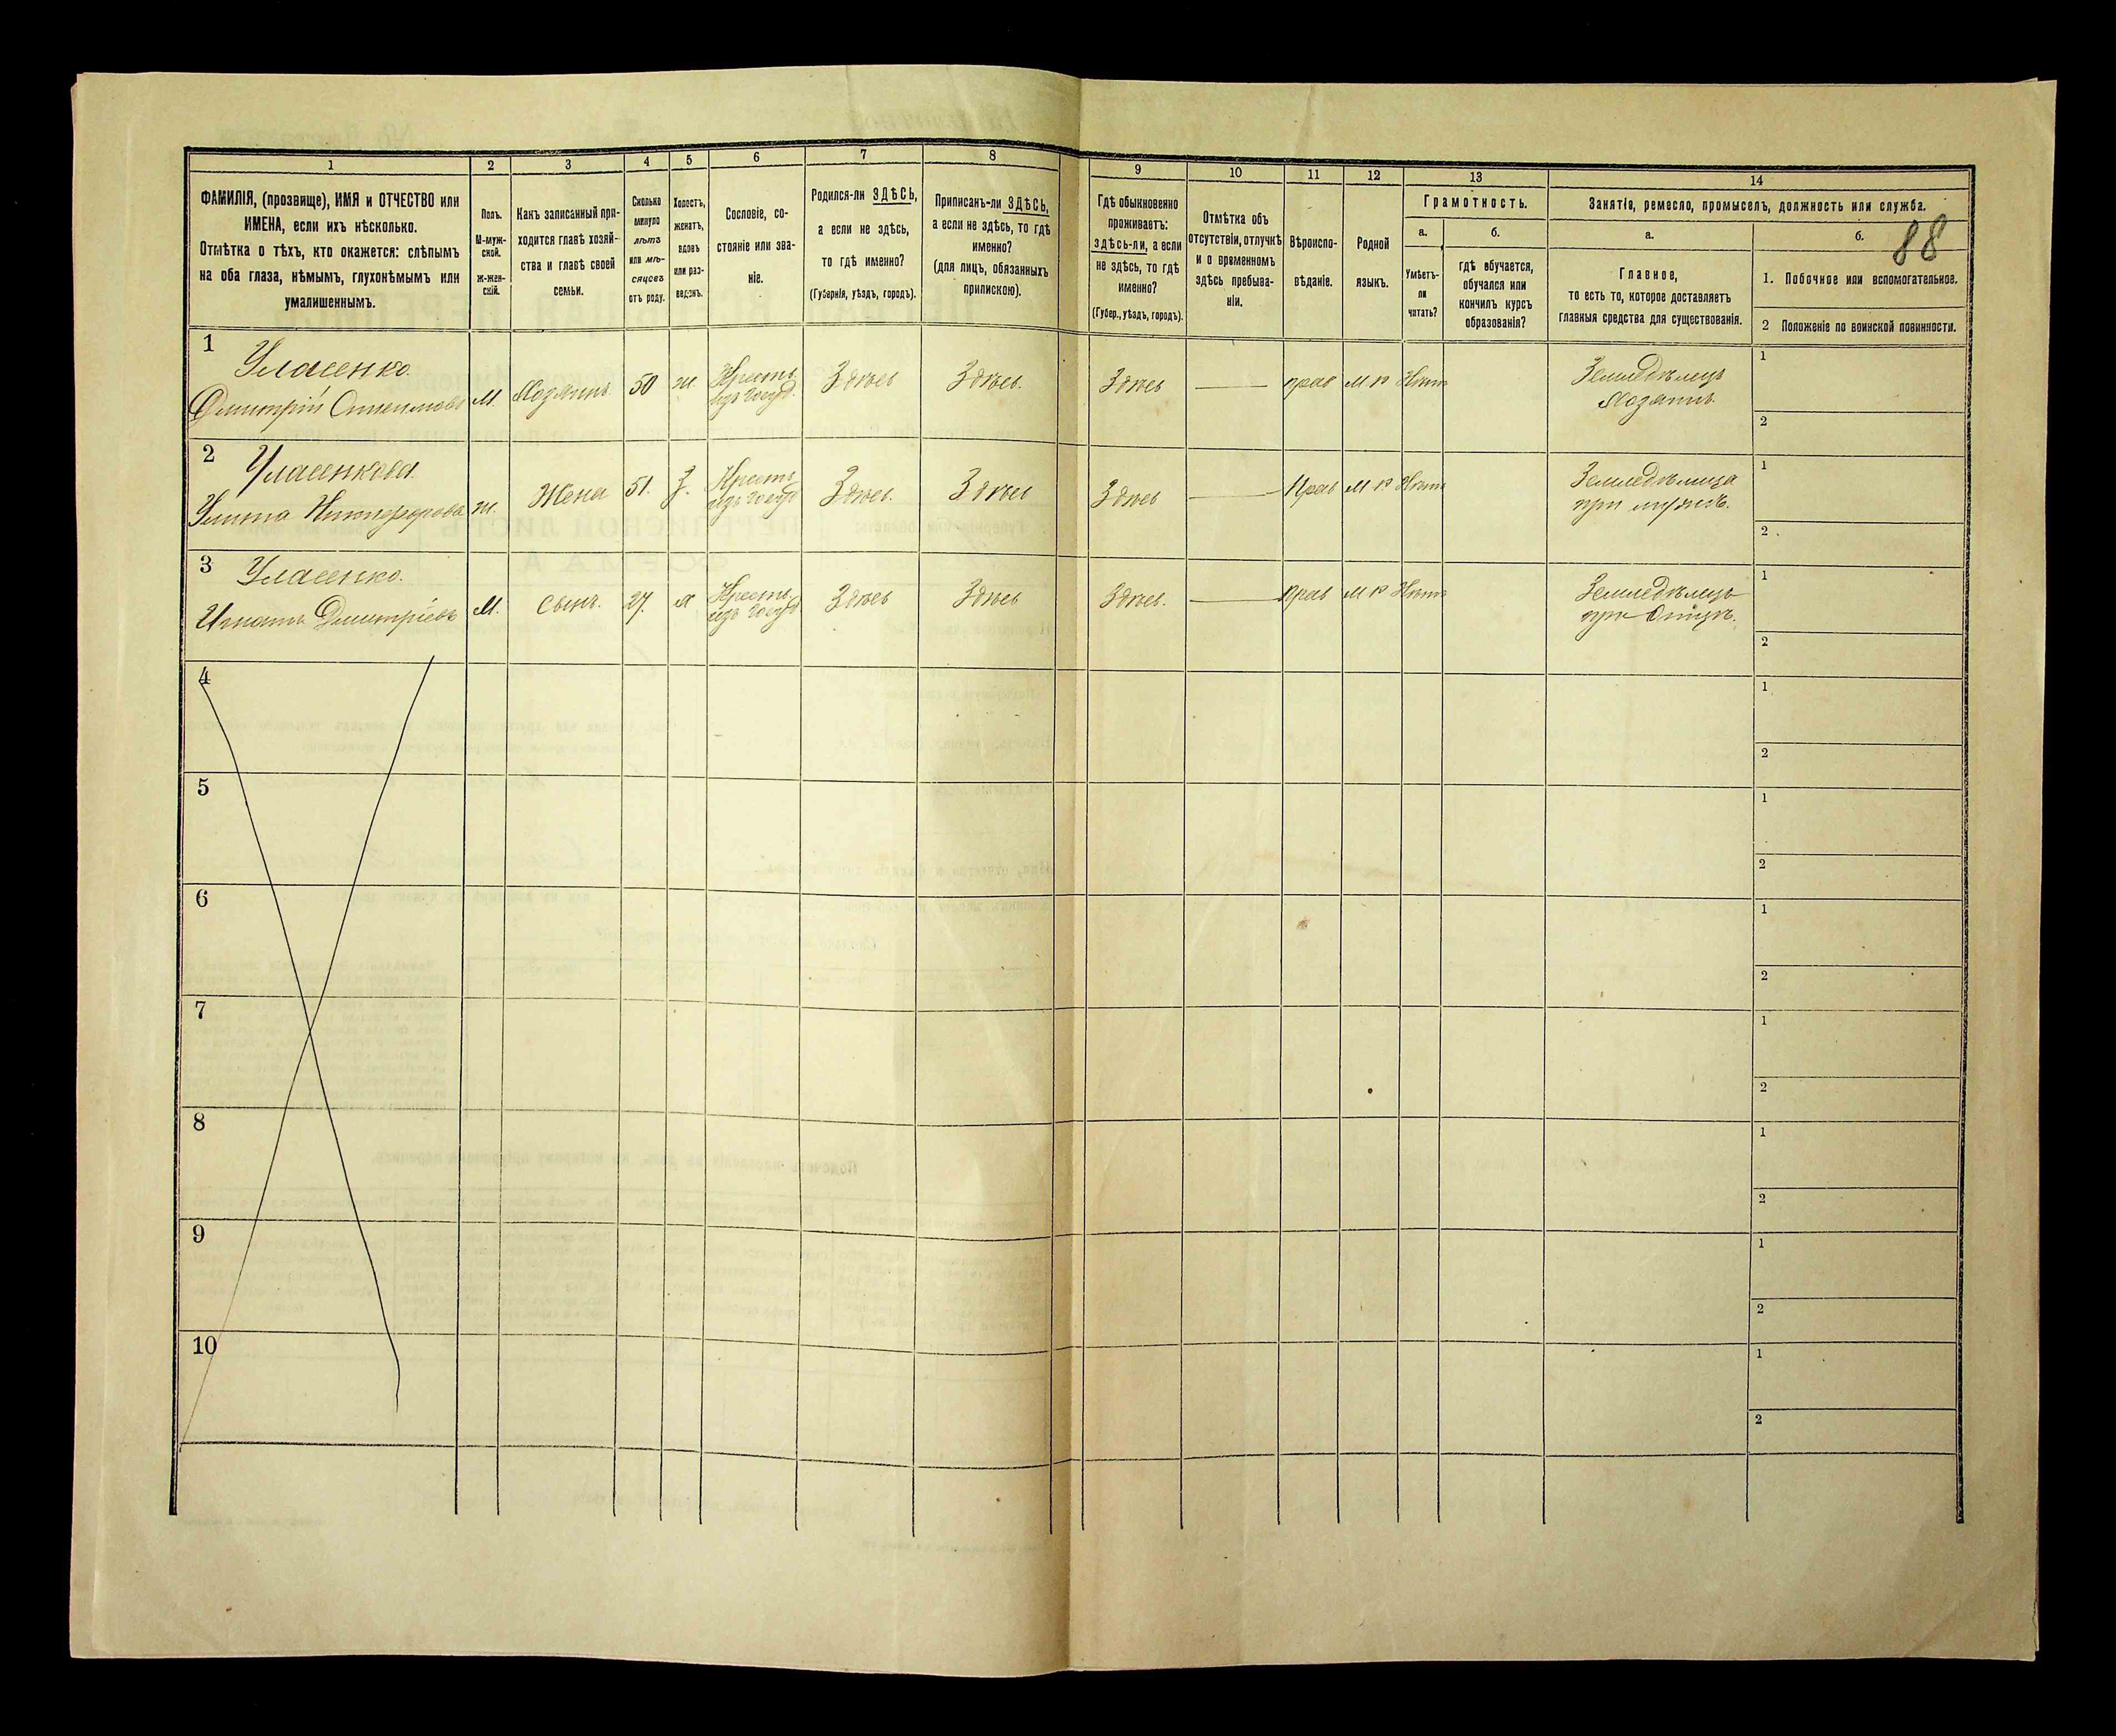 1 2 3 4 5 6 7 8 9 10 11 12 13 14
ФАМИЛІЯ, (прозвище), ИМЯ и ОТЧЕСТВО или
ИМЕНА, если ихъ нѣсколько.
Отмѣтка о тѣхъ, кто окажется: слѣпымъ
на оба глаза, нѣмымъ, глухонѣмымъ или
умалишеннымъ.
Полъ.
М-муж-
ской.
Ж-жен-
скій.
Какъ записанный при-
ходится главѣ хозяй-
ства и главѣ своей
семьи.
Сколько
минуло
лѣтъ
или мѣ-
сяцевъ
отъ роду.
Холостъ,
женатъ,
вдовъ
или раз-
веденъ.
Сословіе, со-
стояніе или зва-
ніе.
Родился-ли ЗДѢСЬ,
а если не здѣсь,
то гдѣ именно?
(Губернія, уѣздъ, городъ).
Приписанъ-ли ЗДѢСЬ,
а если не здѣсь, то гдѣ
именно?
(для лицъ, обязанныхъ
припискою).
Гдѣ обыкновенно
проживаетъ:
здѣсь-ли, а если
не здѣсь, то гдѣ
именно?
(Губер., уѣздъ, городъ).
Отмѣтка объ
отсутствіи, отлучкѣ
и о временномъ
здѣсь пребыва-
ніи.
Вѣроиспо-
вѣданіе.
Родной
языкъ.
Грамотность.
а.
Умѣетъ-
ли
читать?
б.
гдѣ обучается,
обучался или
кончилъ курсъ
образованія?
Занятіе, ремесло, промыселъ, должность или служба.
а.
Главное,
то есть то, которое доставляетъ
главныя средства для существованія.
б.
88
1. Побочное или вспомогательное.
2 Положеніе по воинской повинности.
1 Уласенко
Дмитрій
М. Хозяинъ 50 ж Крест.
изъ госуд.
Здѣсь Здѣсь. Здѣсь прав М Р Нѣтъ
Земледѣлецъ
Хозяинъ
1
2
2 Уласенкова
Улита Никифорова
ж. Жена 51. З. Крест.
изъ госуд
Здѣсь. Здѣсь Здѣсь Прав М Р Нѣтъ
Земледѣлица
при мужѣ.
1
2
3 Уласенко.
Игнатъ Дмитріевъ
М. Сынъ. 27. Крест.
изъ госуд
Здѣсь Здѣсь Здѣсь. Прав М Р Нѣтъ
Земледѣлецъ
при Отцѣ.
1
2
4
1
2
5
1
2
6
1
2
7
1
2
8
1
2
9
1
2
10
1
2